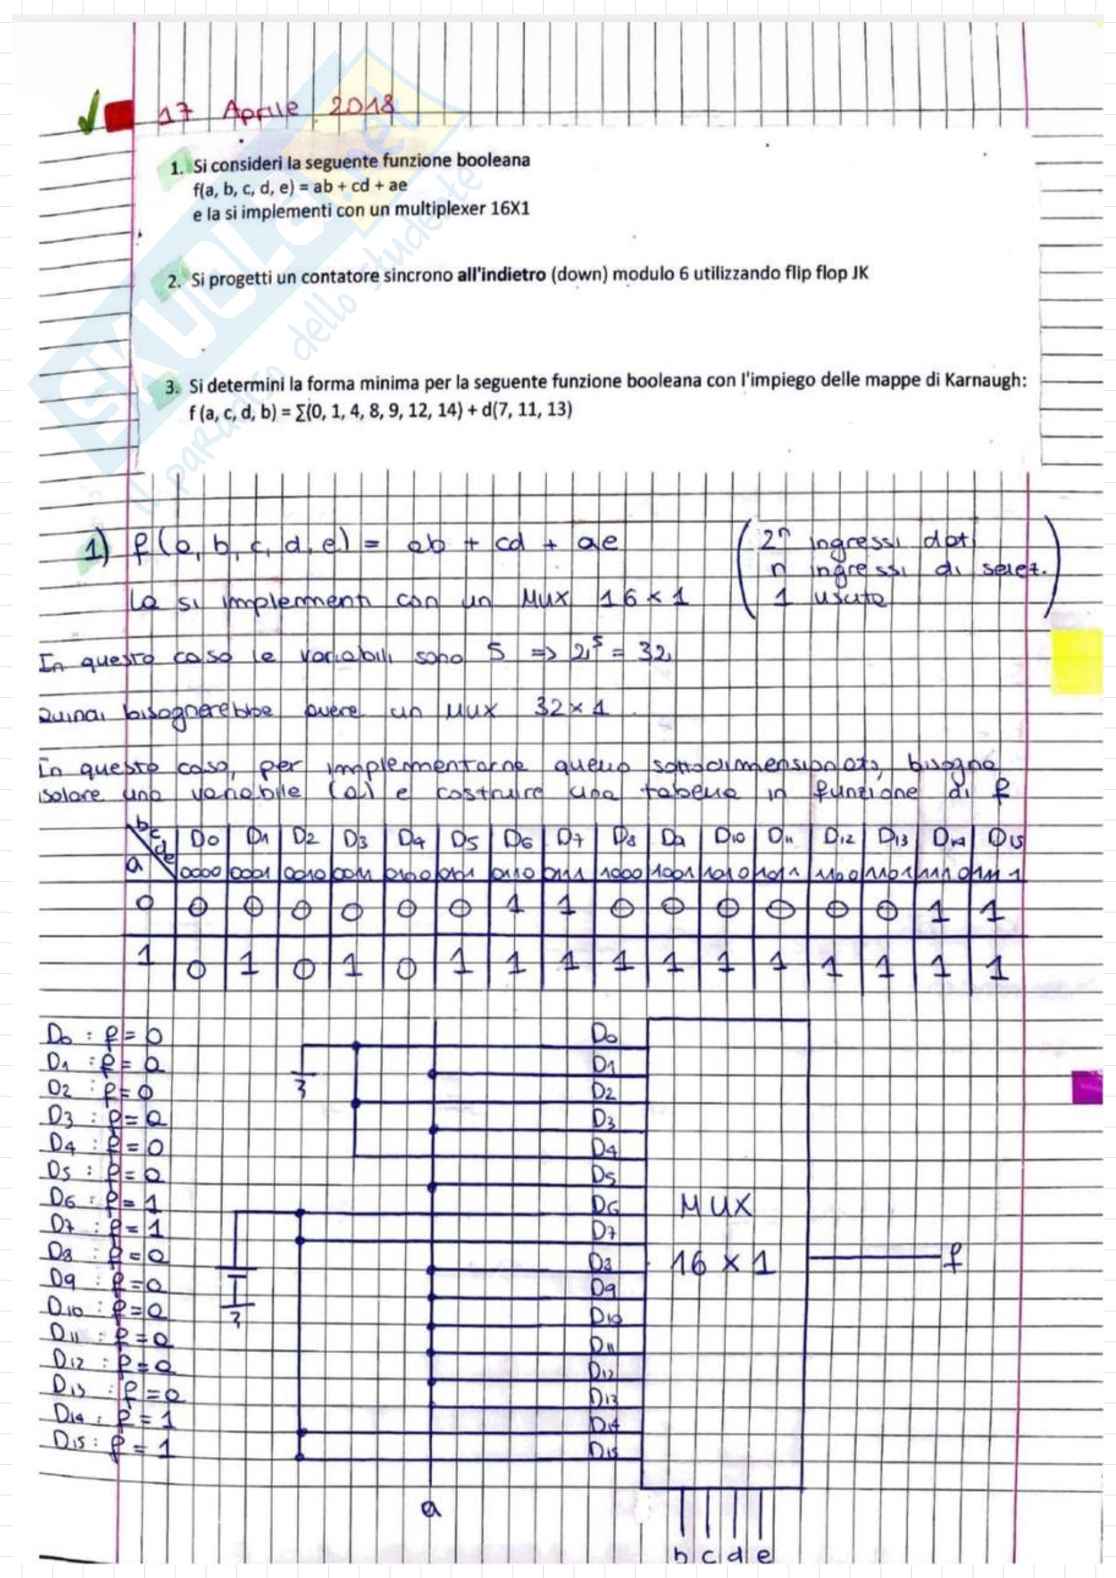 17 Aprile 2018
1. Si consideri la seguente funzione booleana
f(a, b, c, d, e) = ab + cd + ae
e la si implementi con un multiplexer 16X1
2. Si progetti un contatore sincrono all'indietro (down) modulo 6 utilizzando flip flop JK
3. Si determini la forma minima per la seguente funzione booleana con l'impiego delle mappe di Karnaugh:
f (a, c, d, b) = Σ(0, 1, 4, 8, 9, 12, 14) + d(7, 11, 13)
SKUOLA.net
il paradiso dello studente
1) f(a, b, c, d, e) = ab + cd + ae
(2^n ingressi dati
n ingressi di selez.
1 uscita)
la si implementi con un MUX 16×1
In questo caso le variabili sono 5 => 2^5 = 32
Quindi bisognerebbe avere un MUX 32×1
In questo caso, per implementarne quello sottodimensionato, bisogna
isolare una variabile (a) e costruire una tabella in funzione di f
a bcde D0 D1 D2 D3 D4 D5 D6 D7 D8 D9 D10 D11 D12 D13 D14 D15
0000 0001 0010 0011 0100 0101 0110 0111 1000 1001 1010 1011 1100 1101 1110 1111
0 0 0 0 0 0 0 1 1 0 0 0 0 0 0 1 1
1 0 1 0 1 0 1 1 1 1 1 1 1 1 1 1 1
D0 : f = 0
D1 : f = a
D2 : f = 0
D3 : f = a
D4 : f = 0
D5 : f = a
D6 : f = 1
D7 : f = 1
D8 : f = a
D9 : f = a
D10 : f = a
D11 : f = a
D12 : f = a
D13 : f = a
D14 : f = 1
D15 : f = 1
D0
D1
D2
D3
D4
D5
D6
D7
D8
D9
D10
D11
D12
D13
D14
D15
MUX
16 × 1
f
a
b c d e